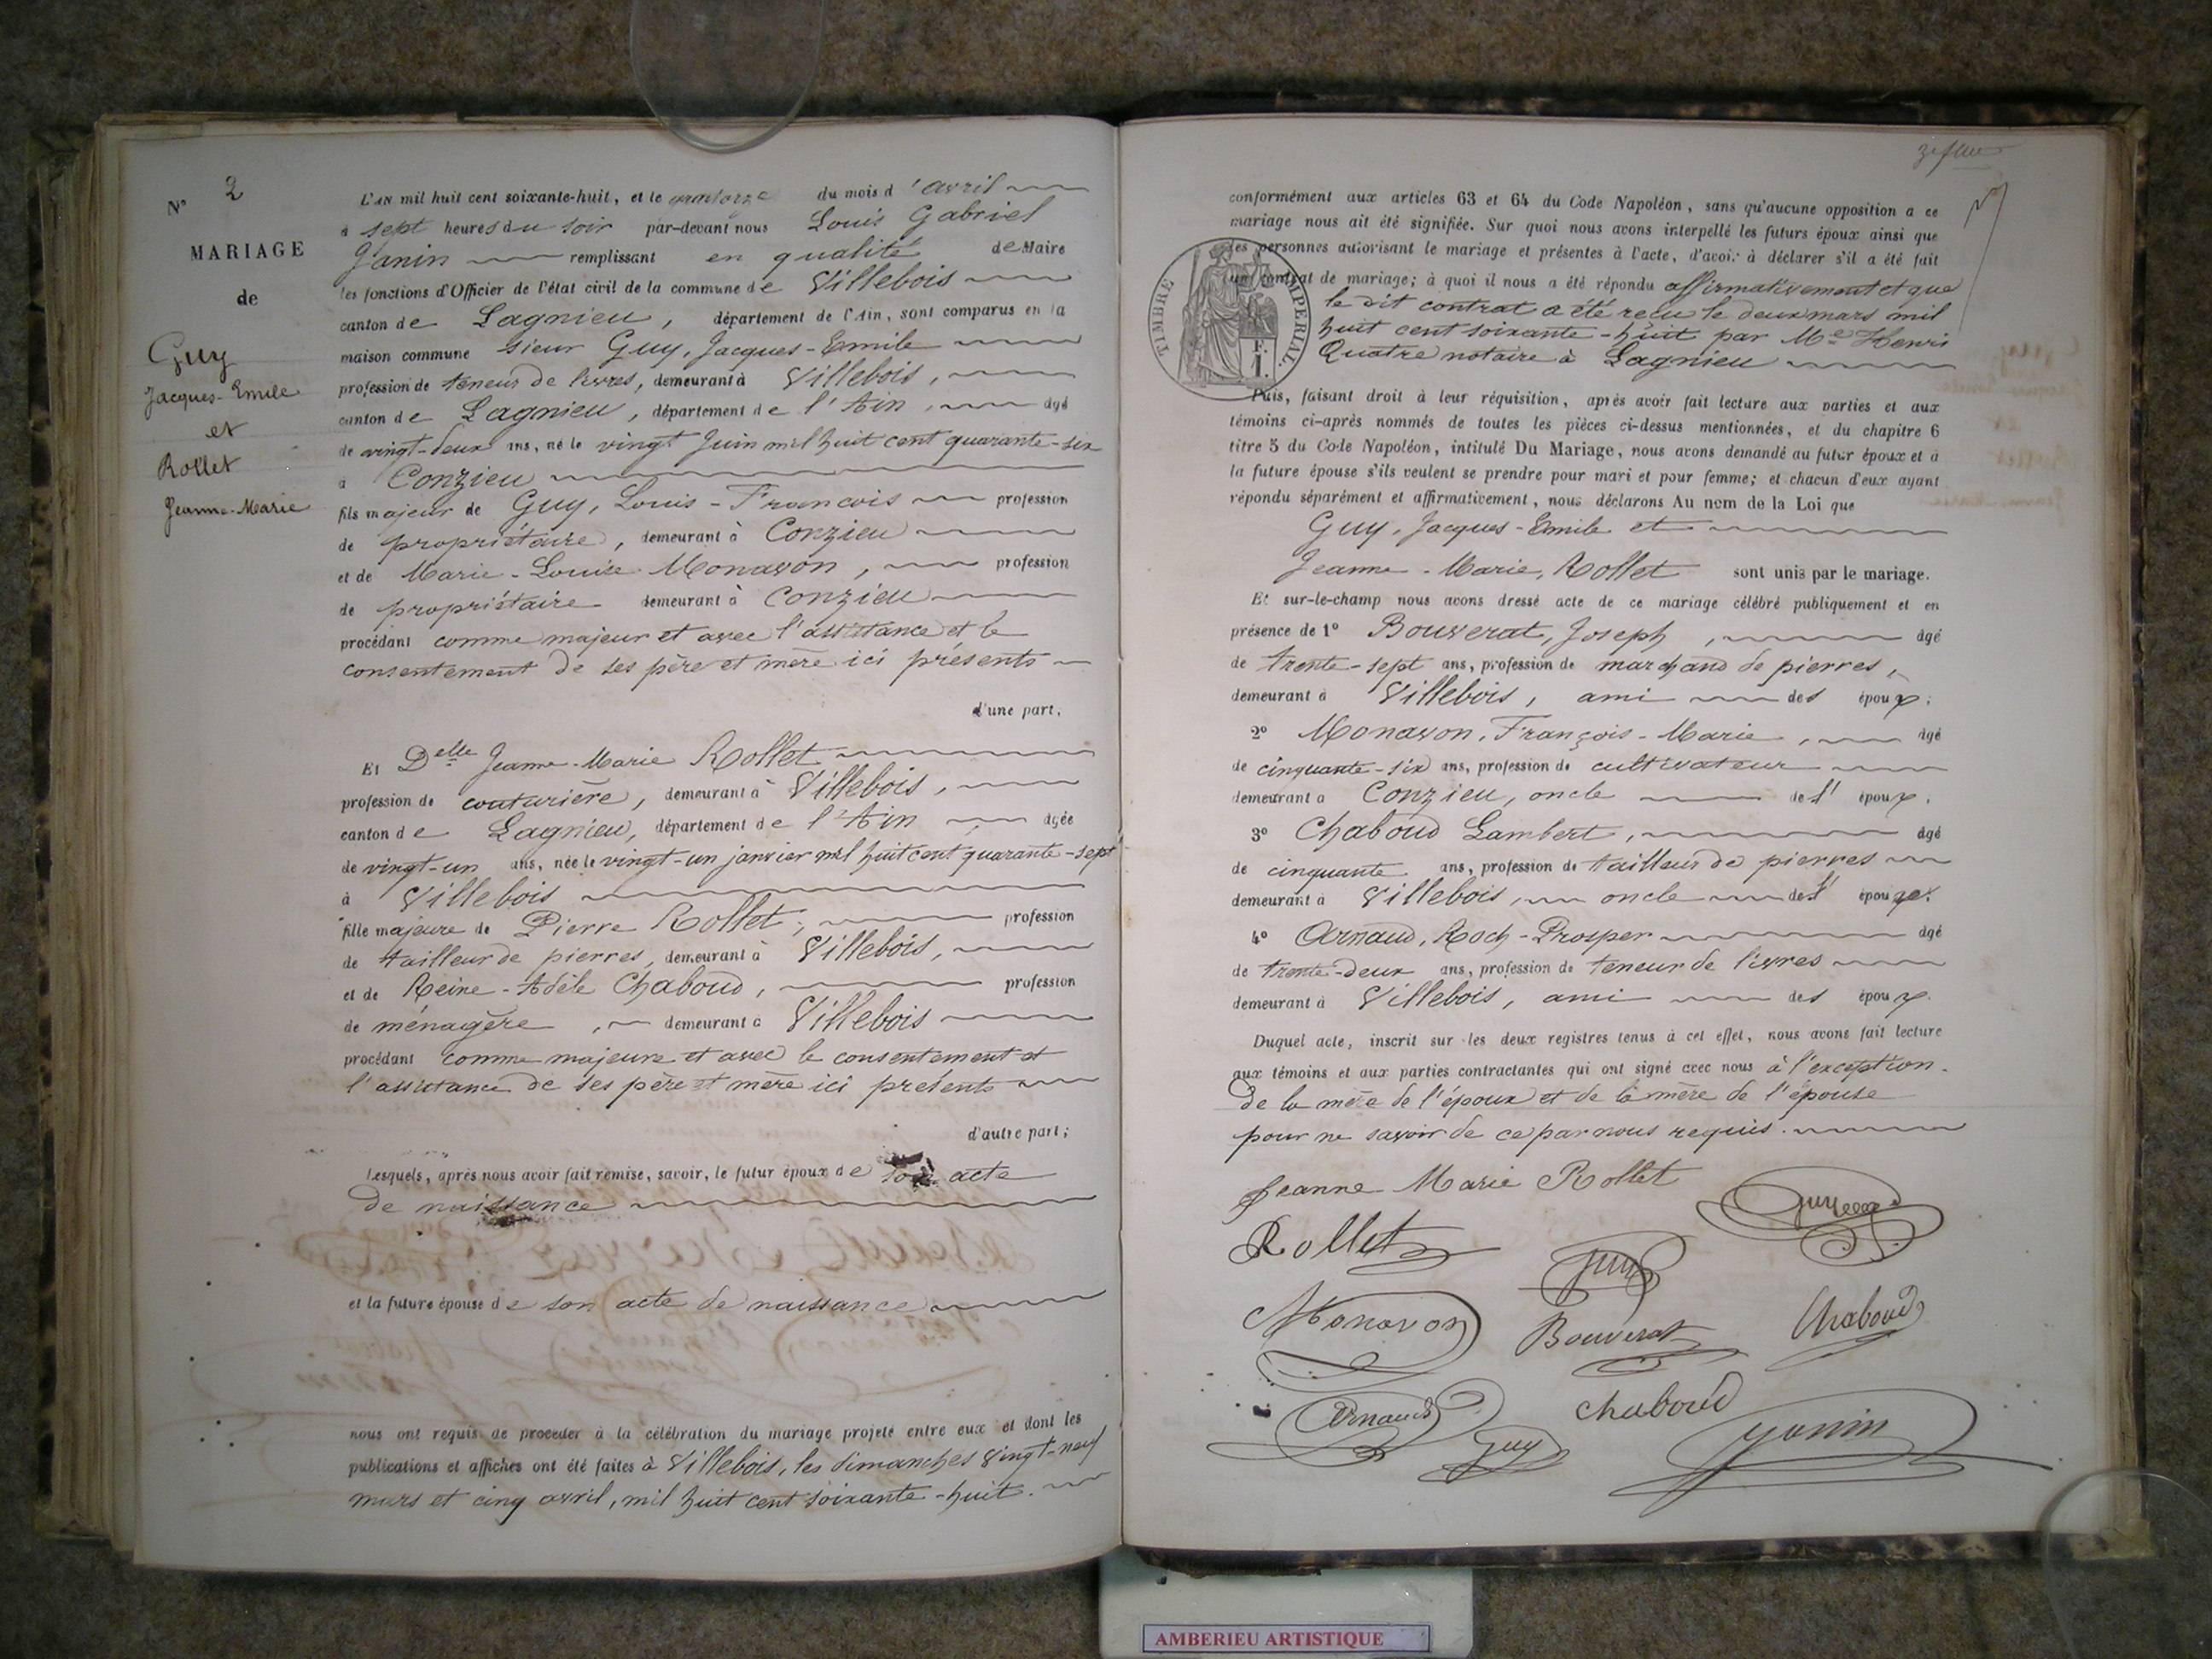 N° 2
MARIAGE
de
Guy
Jacques-Emile
et
Rollet
Jeanne-Marie
L'AN mil huit cent soixante-huit, et le quatorze du mois d'avril
à sept heures du soir par-devant nous Louis Gabriel
Janin remplissant en qualité de Maire
les fonctions d'Officier de l'état civil de la commune de Villebois
canton de Lagnieu, département de l'Ain, sont comparus en la
maison commune sieur Guy, Jacques-Emile
profession de teneur de livres, demeurant à Villebois,
canton de Lagnieu, département de l'Ain, âgé
de vingt-deux ans, né le vingt Juin mil huit cent quarante-six
à Conzieu
fils majeur de Guy, Louis-François profession
de propriétaire, demeurant à Conzieu
et de Marie-Louise Monavon, profession
de propriétaire demeurant à Conzieu
procédant comme majeur et avec l'assistance et le
consentement de ses père et mère ici présents
d'une part,
Et Delle Jeanne-Marie Rollet
profession de couturière, demeurant à Villebois,
canton de Lagnieu, département de l'Ain, âgée
de vingt-un ans, née le vingt-un janvier mil huit cent quarante-sept
à Villebois
fille majeure de Pierre Rollet, profession
de tailleur de pierres, demeurant à Villebois,
et de Reine-Adèle Chaboud, profession
de ménagère, demeurant à Villebois
procédant comme majeure et avec le consentement et
l'assistance de ses père et mère ici présents
d'autre part;
Lesquels, après nous avoir fait remise, savoir, le futur époux de son acte
de naissance
et la future épouse de son acte de naissance
nous ont requis de procéder à la célébration du mariage projeté entre eux et dont les
publications et affiches ont été faites à Villebois, les dimanches vingt-neuf
mars et cinq avril, mil huit cent soixante-huit.
conformément aux articles 63 et 64 du Code Napoléon, sans qu'aucune opposition a ce
mariage nous ait été signifiée. Sur quoi nous avons interpellé les futurs époux ainsi que
les personnes autorisant le mariage et présentes à l'acte, d'avoir à déclarer s'il a été fait
un contrat de mariage; à quoi il nous a été répondu affirmativement et que
le dit contrat a été reçu le deux mars mil
huit cent soixante-huit par Me Henri
Quatre notaire à Lagnieu
TIMBRE IMPERIAL
1 F.
Puis, faisant droit à leur réquisition, après avoir fait lecture aux parties et aux
témoins ci-après nommés de toutes les pièces ci-dessus mentionnées, et du chapitre 6
titre 5 du Code Napoléon, intitulé Du Mariage, nous avons demandé au futur époux et à
la future épouse s'ils veulent se prendre pour mari et pour femme; et chacun d'eux ayant
répondu séparément et affirmativement, nous déclarons Au nom de la Loi que
Guy, Jacques-Emile et
Jeanne-Marie, Rollet sont unis par le mariage.
Et sur-le-champ nous avons dressé acte de ce mariage célébré publiquement et en
présence de 1° Bouverat, Joseph, âgé
de trente-sept ans, profession de marchand de pierres,
demeurant à Villebois, ami des époux;
2° Monavon, François-Marie, âgé
de cinquante-six ans, profession de cultivateur
demeurant à Conzieu, oncle de l'époux,
3° Chaboud Lambert, âgé
de cinquante ans, profession de tailleur de pierres
demeurant à Villebois, oncle de l'épouse.
4° Arnaud, Roch-Prosper âgé
de trente-deux ans, profession de teneur de livres
demeurant à Villebois, ami des époux.
Duquel acte, inscrit sur les deux registres tenus à cet effet, nous avons fait lecture
aux témoins et aux parties contractantes qui ont signé avec nous à l'exception
de la mère de l'époux et de la mère de l'épouse
pour ne savoir de ce par nous requis.
Jeanne Marie Rollet Guy
Rollet Guy
Monavon Bouverat Chaboud
Arnaud Guy Chaboud Janin
AMBERIEU ARTISTIQUE